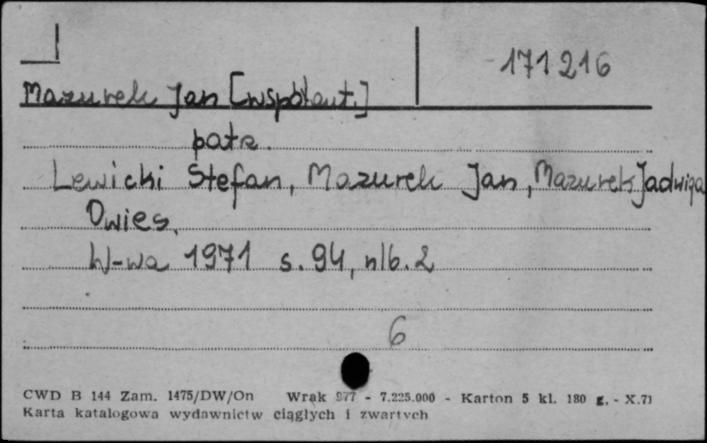 171216
Mazurek Jan [współaut.]
patz.
Lewicki Stefan, Mazurek Jan, Mazurek Jadwiga
Owies.
W-wa 1971 s. 94, nlb. 2
6
CWD B 144 Zam. 1475/DW/On Wrak 977 - 7.225.000 - Karton 5 kl. 180 g. - X.71
Karta katalogowa wydawnictw ciągłych i zwartych